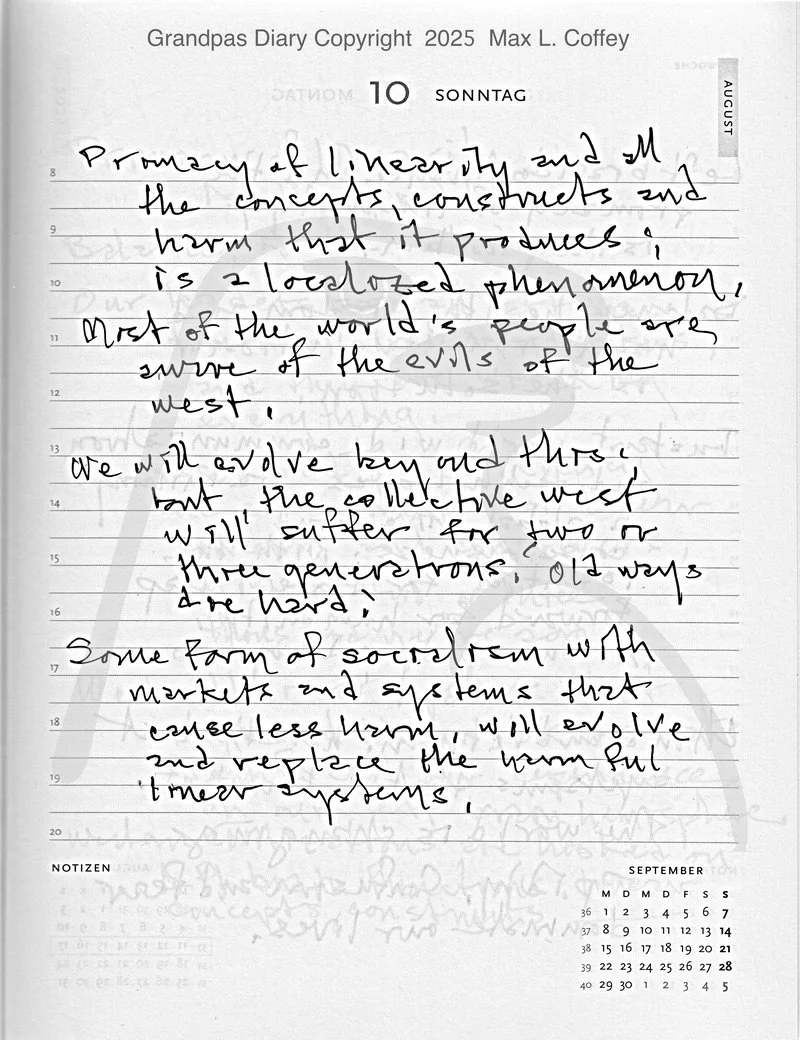 Grandpas Diary Copyright 2025 Max L. Coffey
10 SONNTAG
AUGUST
8
9
10
11
12
13
14
15
16
17
18
19
20
Primacy of linearity and all
the concepts, constructs and
harm that it produces;
is a localized phenomenon.
Most of the world's people are
aware of the evils of the
west.
We will evolve beyond this,
but, the collective west
will suffer for two or
three generations. Old ways
die hard!
Some form of socialism with
markets and systems that
cause less harm, will evolve
and replace the harmful
linear systems.
NOTIZEN
SEPTEMBER
M D M D F S S
36 1 2 3 4 5 6 7
37 8 9 10 11 12 13 14
38 15 16 17 18 19 20 21
39 22 23 24 25 26 27 28
40 29 30 1 2 3 4 5